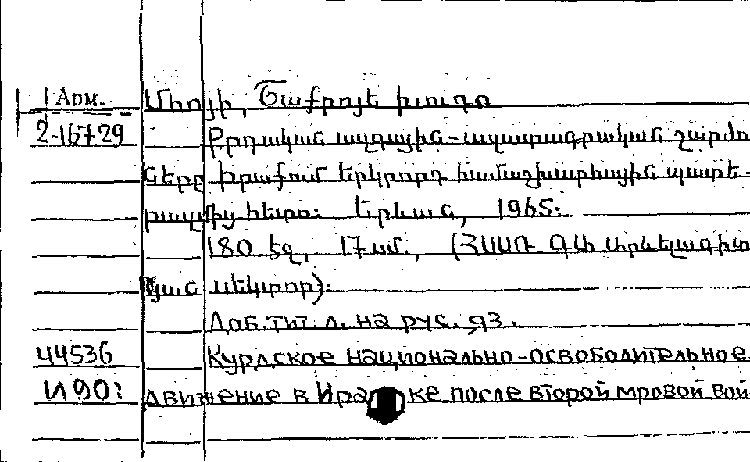 Арм.
2-16729
Մհոյի, Շաքրոյե խուդո
Քրդական ազգային-ազատագրական շարժում
ները Իրաքում երկրորդ համաշխարհային պատե-
րազմից հետո: Երևան, 1965:
180 էջ, 17 սմ., (ՀՍՍՌ ԳԱ Արևելագիտա
կան սեկտոր):
Доб. тит. л. на рус. яз.
44536 Курдское национально-освободительное
движение в Ираке после второй мровой вой